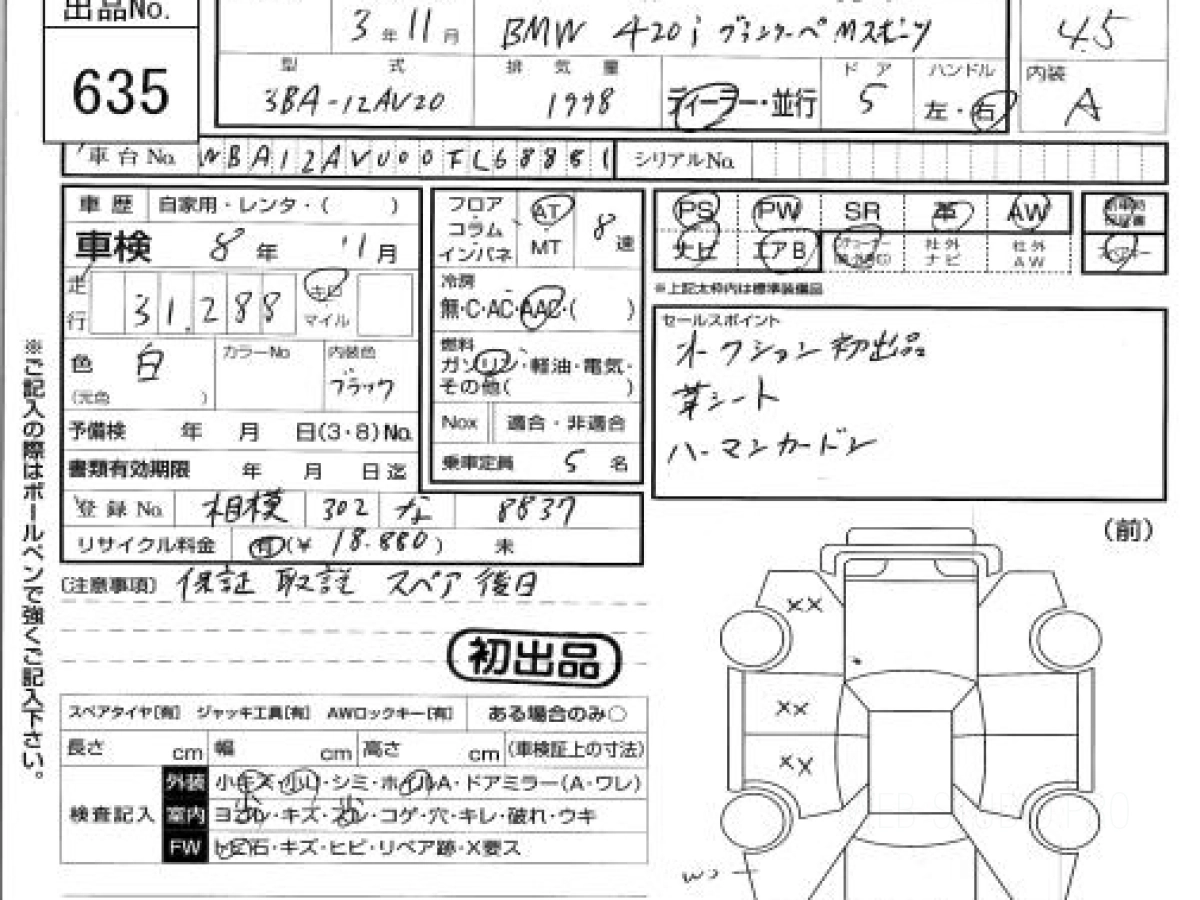 出品No.
635
3年11月 BMW 420i グランクーペ Mスポーツ
4.5
型式 排気量 ドア ハンドル 内装
3BA-12AV20 1998 ディーラー・並行 5 左・右 A
車台No. WBA12AV000FL68851 シリアルNo.
車歴 自家用・レンタ・( )
車検 8年 11月
走行 31,288 キロ マイル
色 白 (元色 ) カラーNo 内装色 ブラック
予備検 年 月 日(3・8)No.
書類有効期限 年 月 日迄
登録No. 相模 302 な 8837
リサイクル料金 有(¥ 18.880) 未
フロア コラム インパネ AT MT 8速
冷房
無・C・AC・AAC・( )
燃料
ガソリン・軽油・電気・
その他( )
Nox 適合・非適合
乗車定員 5名
PS PW SR 革 AW
ナビ エアB 社外ナビ 社外AW
※上記太枠内は標準装備品
セールスポイント
オークション初出品
革シート
ハーマンカードン
(注意事項) 保証 取説 スペア 後日
初出品
(前)
スペアタイヤ[有] ジャッキ工具[有] AWロックキー[有] ある場合のみ○
長さ cm 幅 cm 高さ cm (車検証上の寸法)
検査記入
外装 小キズ・小凹・シミ・ホイルA・ドアミラー(A・ワレ)
室内 ヨゴレ・キズ・スレ・コゲ・穴・キレ・破れ・ウキ
FW トビ石・キズ・ヒビ・リペア跡・X要ス
XX
XX
XX
W2
※ご記入の際はボールペンで強くご記入下さい。